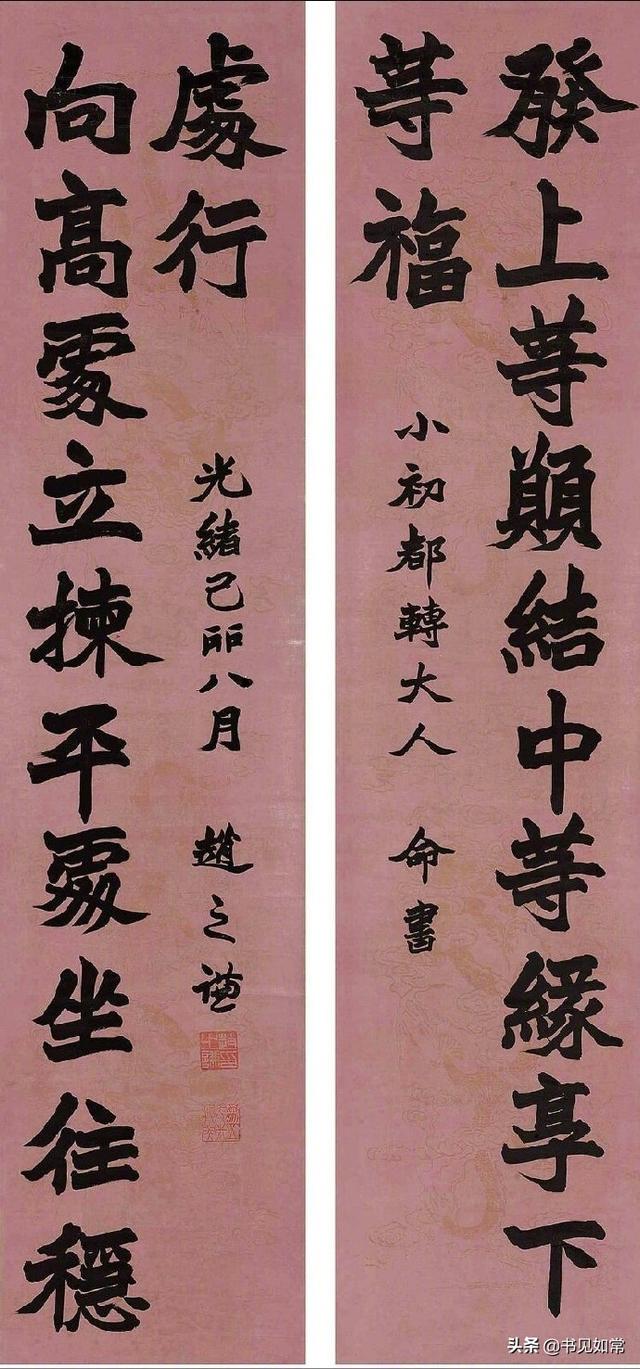 發上等願結中等緣享下
等福
小初都轉大人 命書
向高處立揀平處坐往穩
處行
光緒己卯八月 趙之謙
头条 @书见如常